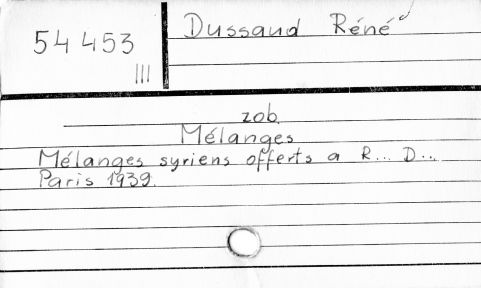 54 453
III
Dussaud Réné
zob.
Mélanges
Mélanges syriens offerts a R... D...
Paris 1939.